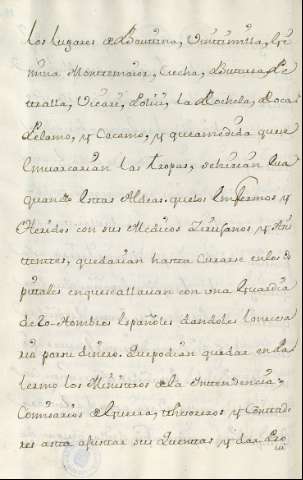 los lugares de Bautina, Vintimilla, Ge
mina Montremaior, Ciecha, Butera, Pe
tralla, Vicari, Polisi, la Rochela, Roca
Pelamo, y Cacamo, y que amedida que se
embarcarian las tropas, se hirian bua
quando estas Aldeas. que los Enfermos y
Heridos con sus Medicos Zirujanos y Asis
tentes, quedarian hasta curarse en los os
pitales en que se allavan con una Guardia
de 20 - Hombres Españoles dandoles lo nesesa
rio por su dinero. Que podian quedar en Pa
lermo los Ministros de la Yntendencia,
Comisarios de Guerra, thesoreros y Contado
res asta ajustar sus Quentas y dar Pro